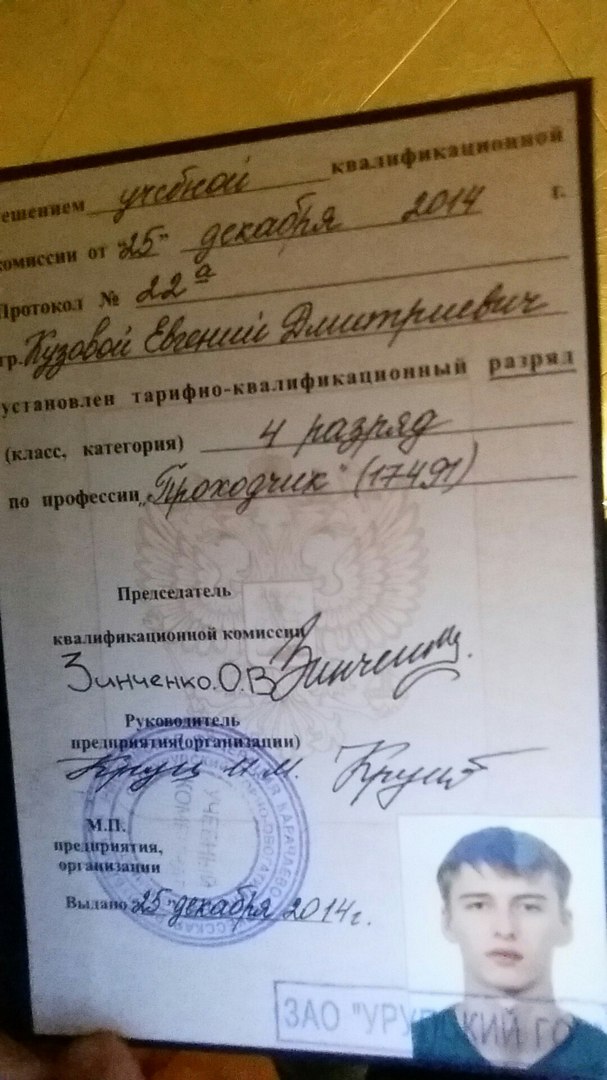 ешением учебной квалификационной
комиссии от "25" декабря 2014 г.
Протокол № 22а
гр. Кузовой Евгений Дмитриевич
установлен тарифно-квалификационный разряд
(класс, категория) 4 разряд
по профессии "Проходчик" (17491)
Председатель
квалификационной комиссии
Зинченко. О.В Зинченко
Руководитель
предприятия(организации)
М.П.
предприятия,
организации
УЧЕБНЫЙ
Выдано "25" декабря 2014г.
ЗАО "УРУПСКИЙ ГО